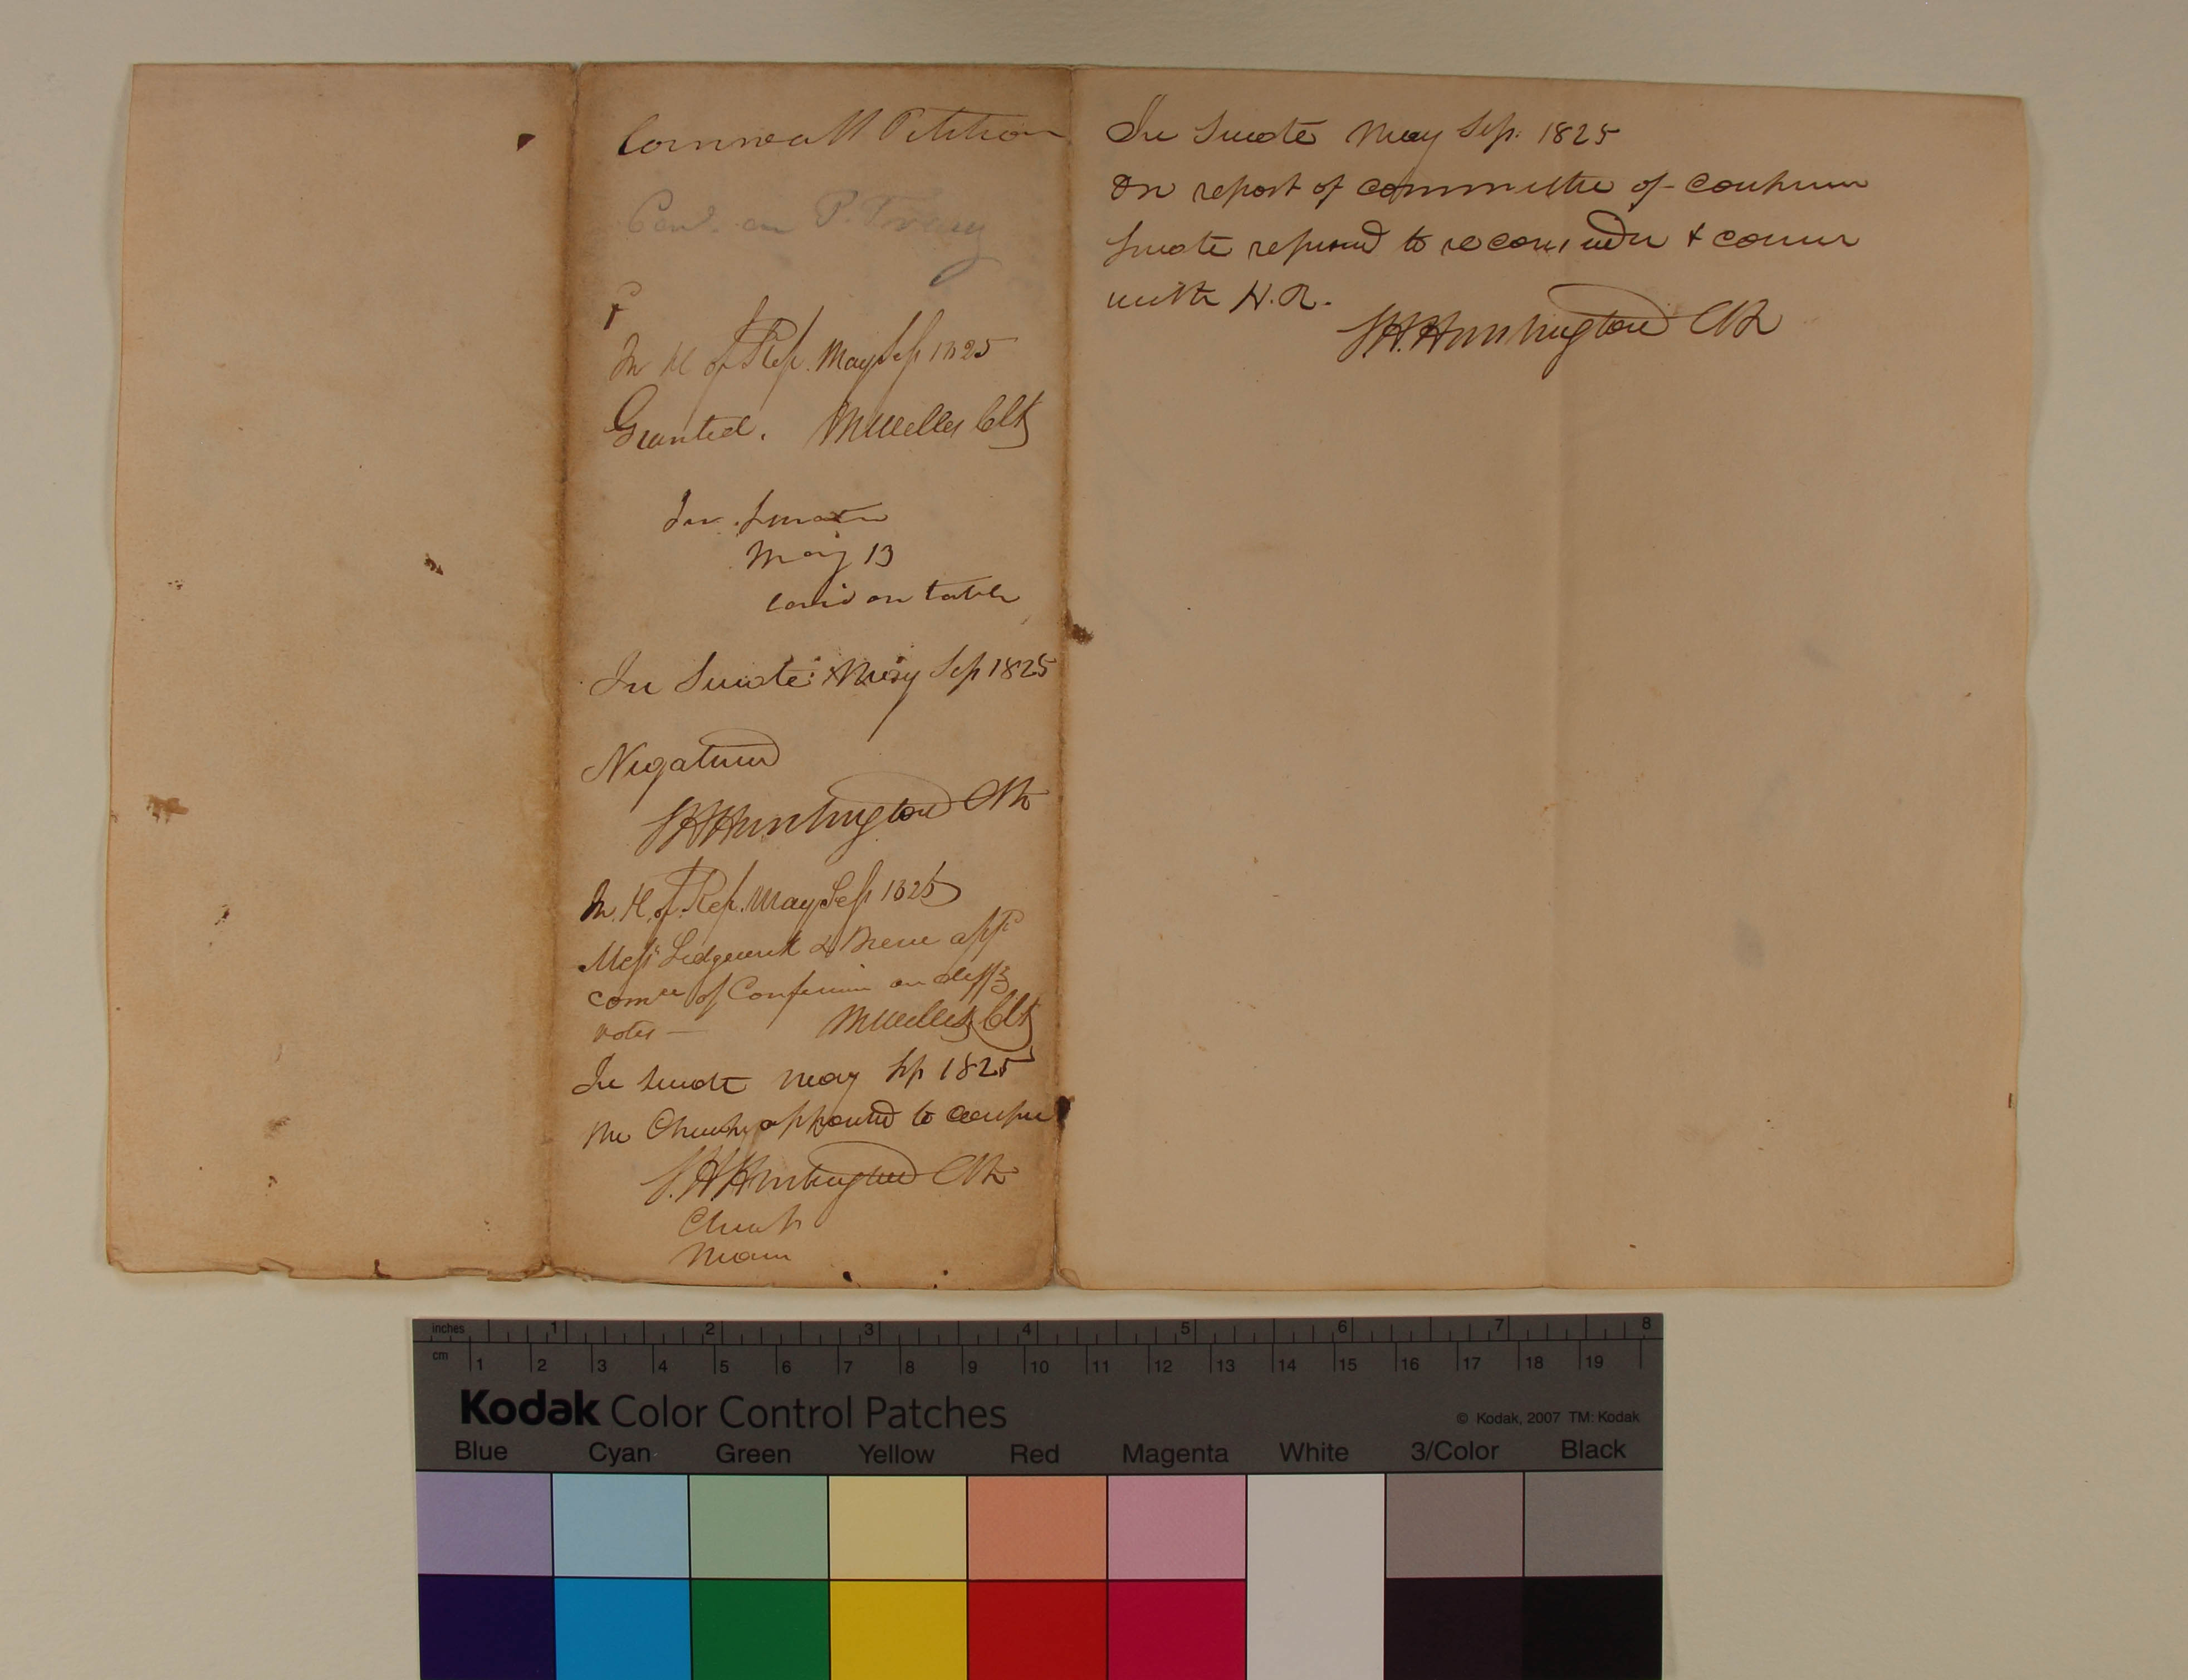 Cornwall Petition
P
In H of Rep. May Sess 1825
Granted. Clk
In Senate
May 13
laid on table
In Senate May Sess 1825
Negatived
S H Huntington Clk
In H. of Rep. May Sess 1825
Mess Sedgwick & app
Comee of Conference on diffg
votes — Clk
In Senate May Sess 1825
Mr Church appointed to confer
S. H Huntington Clk
Church
In Senate May Sess. 1825
On report of committee of conference
Senate refused to reconsider & concur
with H. R.
S. H. Huntington Clk
inches 1 2 3 4 5 6 7 8
cm 1 2 3 4 5 6 7 8 9 10 11 12 13 14 15 16 17 18 19
Kodak Color Control Patches
© Kodak, 2007 TM: Kodak
Blue Cyan Green Yellow Red Magenta White 3/Color Black